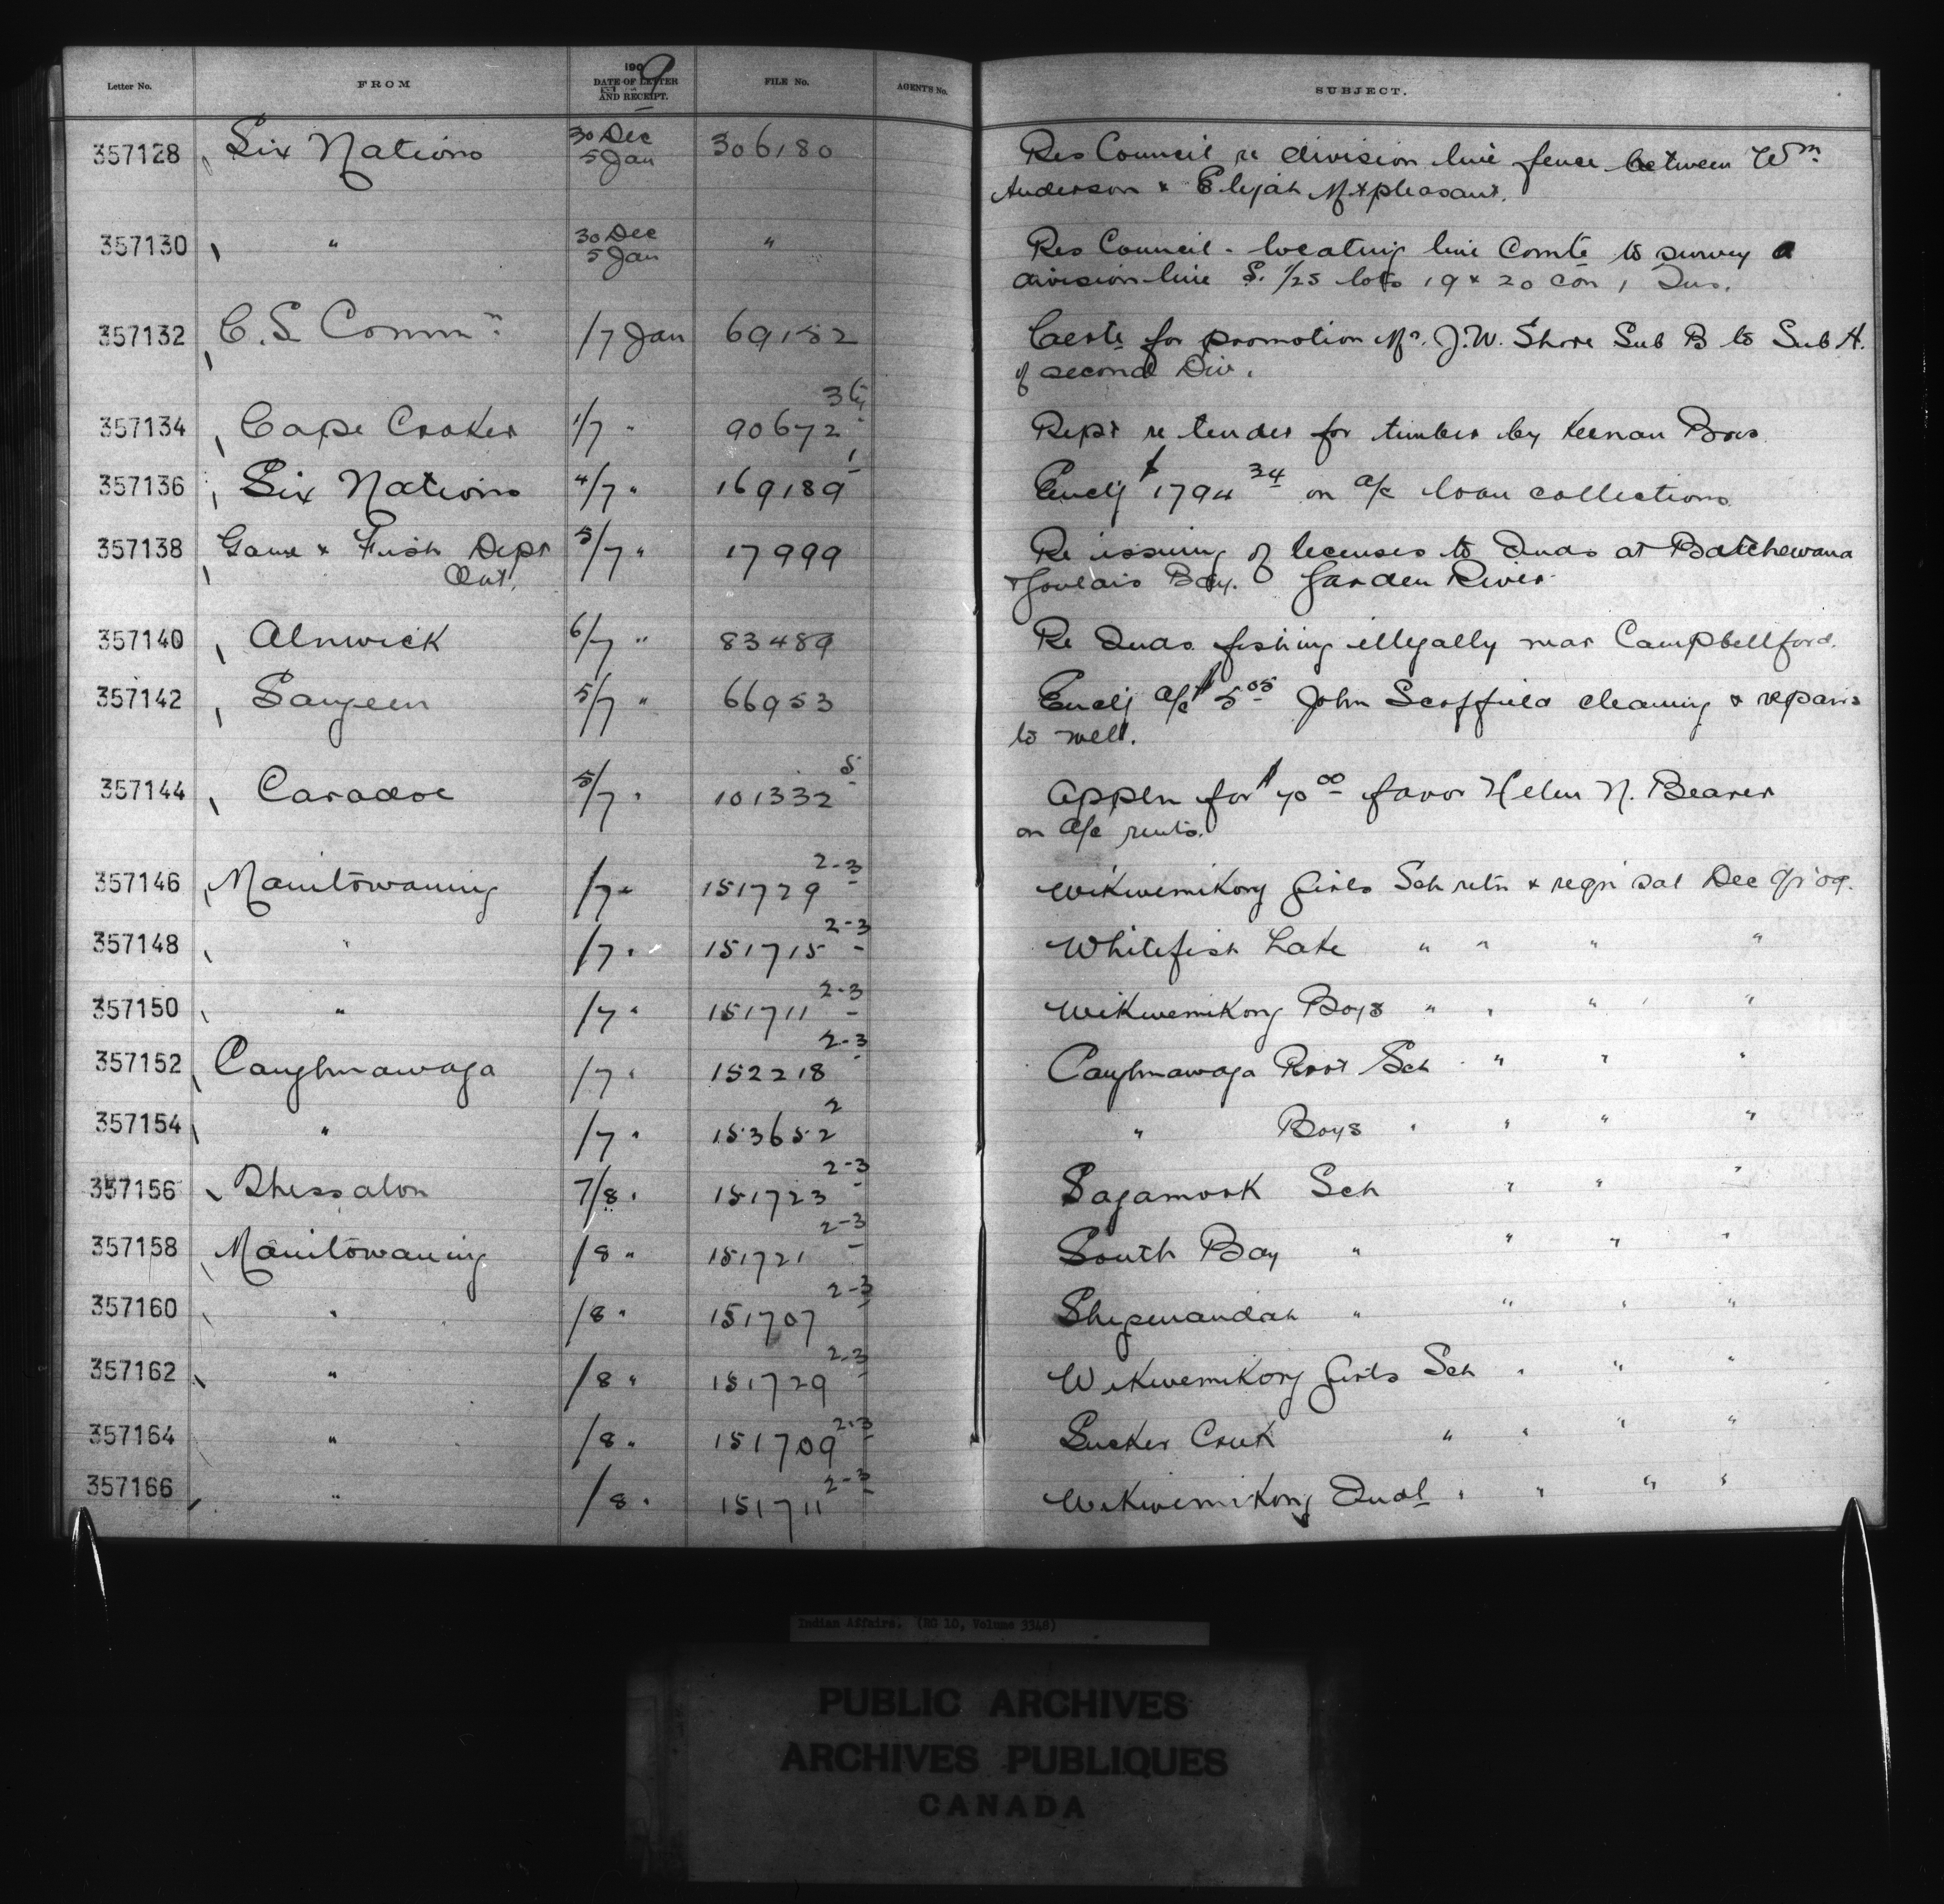 Letter No. FROM 1909 DATE OF LETTER AND RECEIPT. FILE No. AGENT'S No. SUBJECT.
357128 Six Nations 30 Dec 5 Jan 306180 Res Council re division line fence between Wm
Anderson & Elijah Mtpleasant.
357130 " 30 Dec 5 Jan " Res Council - locating line Comte to survey a
division line S. 1/2s lots 19 & 20 con 1 Tus.
357132 C.S Commn 17 Jan 69152 Certe for promotion Mr. J.W. Shore Sub B to Sub A.
of second Div.
357134 Cape Croker 1/7 " 90672 Rept re tender for timber by Keenan Bros
357136 Six Nations 4/7 " 169189 1 Enclg $1794 34 on a/c loan collections
357138 Game & Fish Dept 5/7 " 17999 Re issuing of licenses to Inds at Batchewana
Ont. & Goulais Bay. Garden River
357140 Alnwick 6/7 " 83489 Re Inds fishing illegally near Campbellford.
357142 Saugeen 5/7 " 66953 Enclg a/c $5 05 John Scoffield cleaning & repairs
to well.
357144 Caradoc 5/7 " 101332 5 Appln for $40 00 favor Helen N. Beaver
on a/c rents.
357146 Manitowaning /7 " 151729 2-3 Wikwemikong Girls Sch retn & reqn sal Dec qr '09.
357148 " /7 " 151715 2-3 Whitefish Lake " " " "
357150 " /7 " 151711 2-3 Wikwemikong Boys " " " "
357152 Caughnawaga /7 " 152218 2-3 Caughnawaga Prot Sch " " "
357154 " /7 " 153652 2 " Boys " " " "
357156 Thessalon 7/8 " 151723 2-3 Sagamook Sch " " "
357158 Manitowaning /8 " 151721 2-3 South Bay " " " "
357160 " /8 " 151707 2-3 Shegwandah " " " "
357162 " /8 " 151729 2-3 Wikwemikong Girls Sch " " "
357164 " /8 " 151709 2-3 Sucker Creek " " " "
357166 " /8 " 151711 2-3 Wikwemikong Indl " " " "
Indian Affairs. (RG 10, Volume 3348)
PUBLIC ARCHIVES
ARCHIVES PUBLIQUES
CANADA